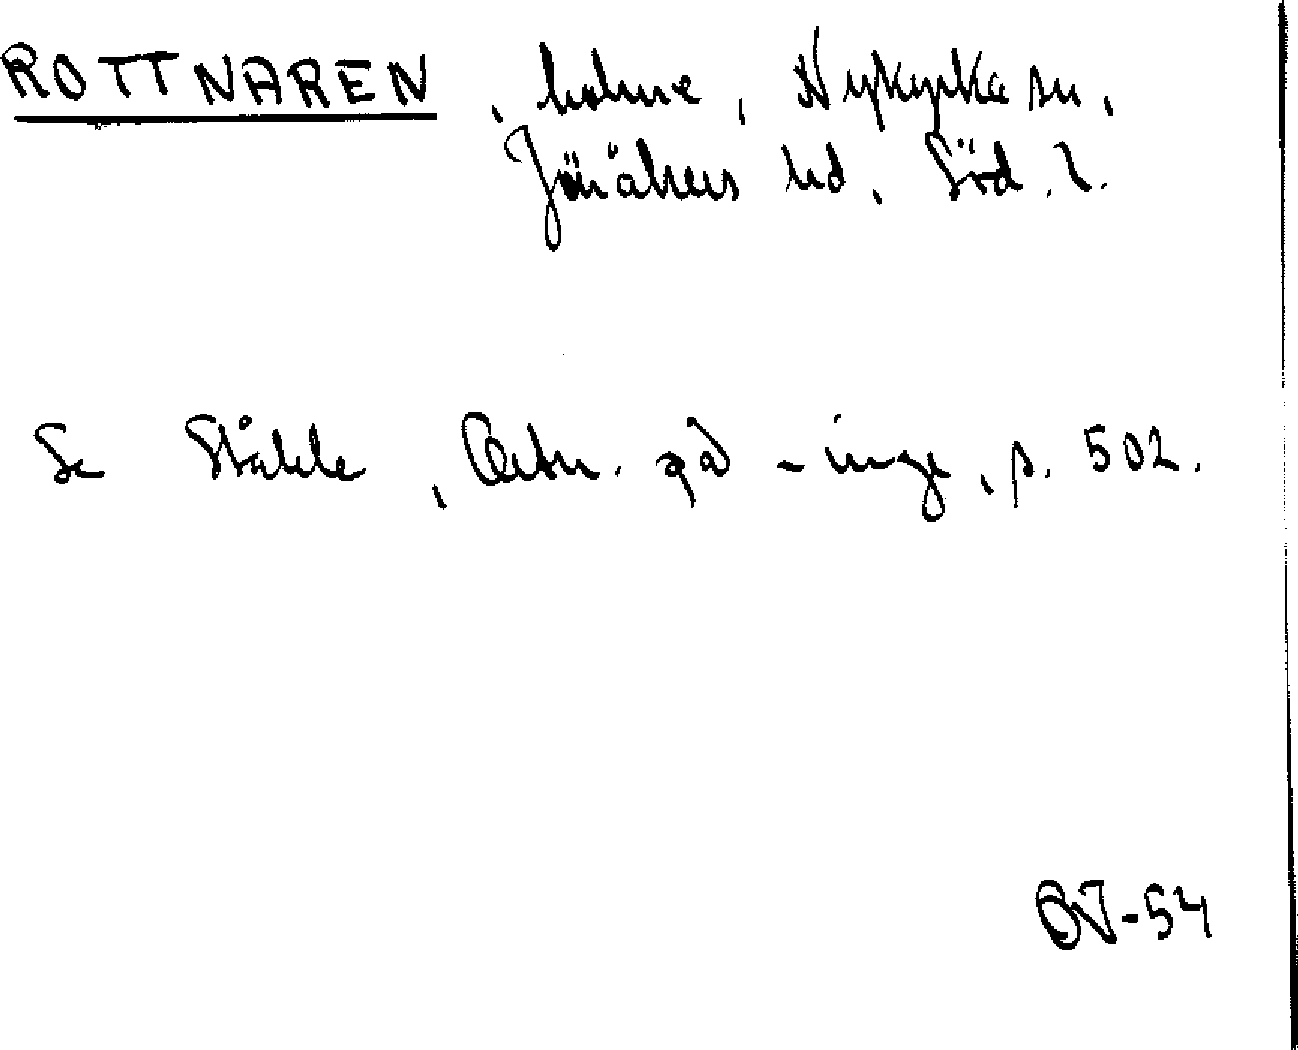 ROTTNAREN, holme, Nykyrka sn,
Jönåkers hd, Söd. l.
Se Ståhle, Ortn. på -inge, s. 502.
OJ-54